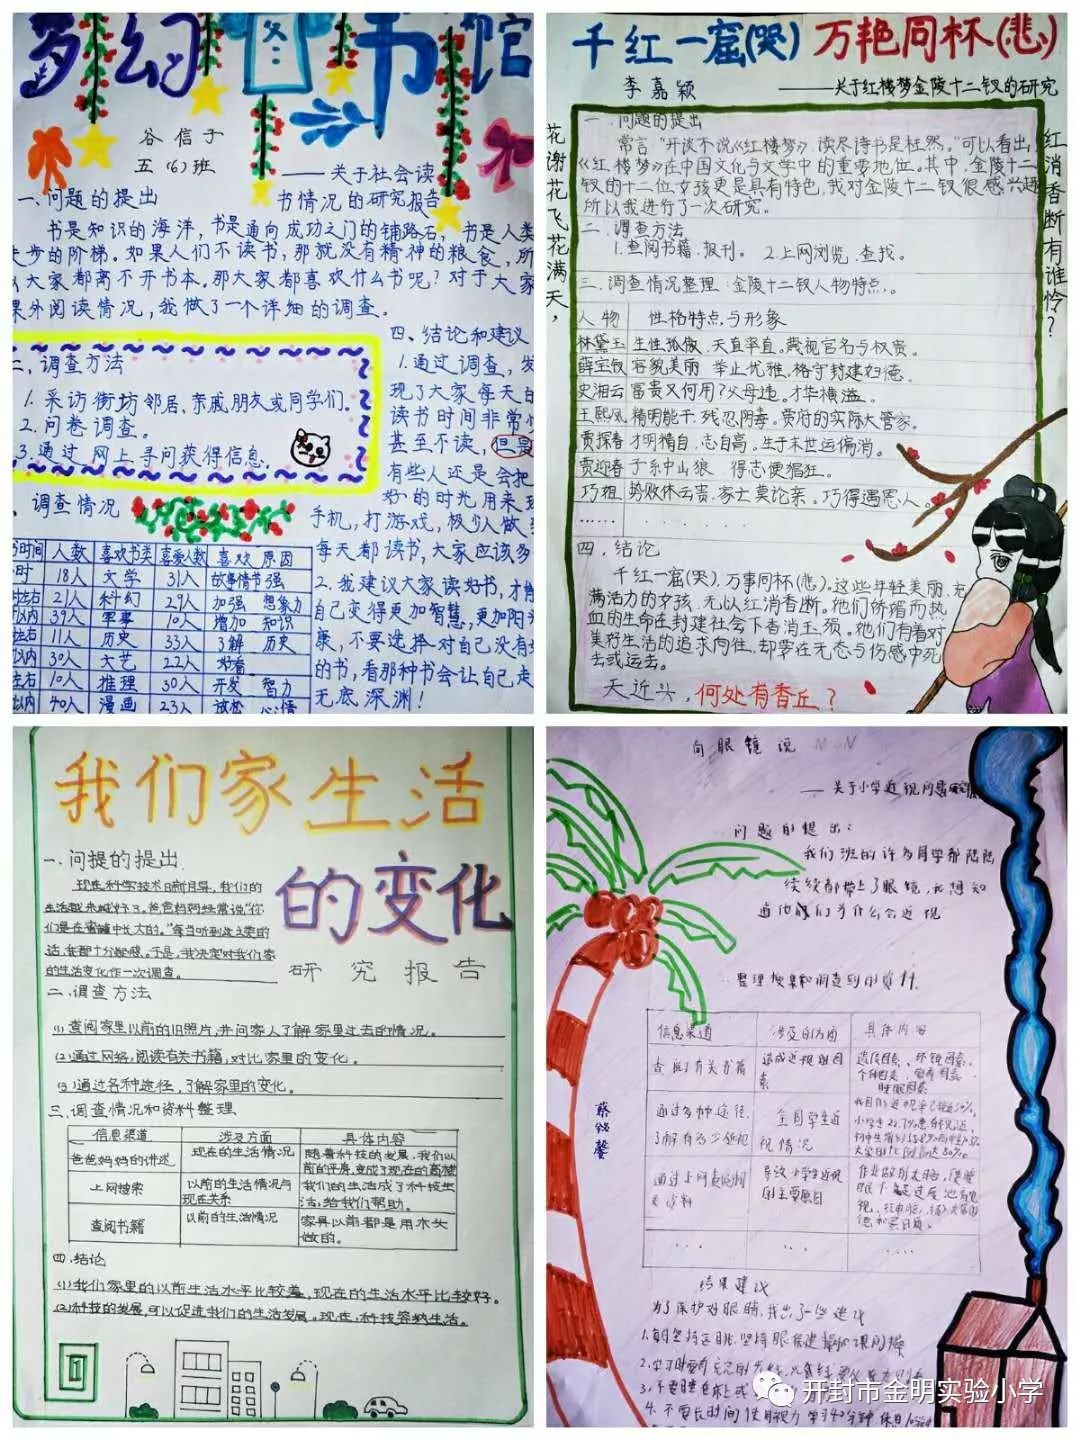 梦幻图书馆
谷信于
五(6)班
——关于社会读
书情况的研究报告
一、问题的提出
书是知识的海洋，书是通向成功之门的铺路石，书是人类
步的阶梯。如果人们不读书，那就没有精神的粮食，所
大家都离不开书本。那大家都喜欢什么书呢？对于大家
课外阅读情况，我做了一个详细的调查。
二、调查方法
1.采访街坊邻居、亲戚朋友或同学们。
2.问卷调查。
3.通过网上寻问获得信息.
调查情况
书时间 人数 喜欢书类 喜爱人数 喜欢 原因
时 18人 文学 31人 故事情节强
左右 21人 科幻 29人 加强 想象力
以内 39人 军事 10人 增加 知识
左右 11人 历史 33人 了解 历史
以内 30人 文艺 22人 好看
左右 10人 推理 30人 开发 智力
以内 40人 漫画 23人 放松 心情
四、结论和建议
1.通过调查，发
现了大家每天的
读书时间非常
甚至不读，但是
有些人还是会把
好的时光用来
手机，打游戏，极少人做
每天都读书，大家应该多
2.我建议大家读好书，才能
自己变得更加智慧，更加阳
康，不要选择对自己没有
的书，看那种书会让自己走
无底深渊！
千红一窟(哭) 万艳同杯(悲)
李嘉颖
——关于红楼梦金陵十二钗的研究
花谢花飞花满天，
红消香断有谁怜？
一.问题的提出
常言“开谈不说《红楼梦》，读尽诗书是枉然。”可以看出，
《红楼梦》在中国文化与文学中的重要地位。其中，金陵十二
钗的十二位女孩更是具有特色，我对金陵十二钗很感兴趣
所以我进行了一次研究。
二.调查方法
1.查阅书籍.报刊。 2.上网浏览.查找。
三.调查情况整理：金陵十二钗人物特点.。
人物 性格特点与形象
林黛玉 生性孤傲.天真率直。蔑视官名与权贵。
薛宝钗 容貌美丽 举止优雅.恪守封建妇德。
史湘云 富贵又何用？父母违。才华横溢。
王熙凤 精明能干.残忍阴毒。贾府的实际大管家。
贾探春 才明精自.志自高。生于末世运偏消。
贾迎春 子系中山狼 得志便猖狂。
巧姐 势败休云贵.家亡莫论亲。巧得遇恩人。
……
四.结论
千红一窟(哭).万事同杯(悲).这些年轻美丽.充
满活力的女孩.无以红消香断。他们娇媚而热
血的生命在封建社会下香消玉须。他们有着对
美好生活的追求向往，却零在无态与伤感中死
去或远去。
天近头，何处有香丘？
我们家生活
的变化
研究报告
一.问提的提出
现在科学技术日新月异，我们的
生活越来越好了。爸爸妈妈经常说“你
们是在蜜罐中长大的。”每当听到这类的
话，我都十分疑惑。于是，我决定对我们家
的生活变化作一次调查。
二.调查方法
(1)查阅家里以前的旧照片，并问家人了解家里过去的情况。
(2)通过网络，阅读有关书籍，对比家里的变化。
(3)通过各种途径，了解家里的变化。
三.调查情况和资料整理
信息渠道 涉及方面 具体内容
爸爸妈妈的讲述 现在的生活情况 随着科技的发展，我们以前的平房，变成了现在的高楼
上网搜索 以前的生活情况与现在关系 我们的生活成了科技生活，给我们帮助。
查阅书籍 以前的生活情况 家具以前都是用木头做的。
四.结论
(1)我们家里的以前生活水平比较差，现在的生活水平比较好。
(2)科技的发展，可以促进我们的生活发展。现在，科技容纳生活。
向眼镜说
——关于小学近视问题
问题的提出：
我们班的许多同学都陆陆
续续都带上了眼镜，我想知
道他们为什么会近视
整理搜集和调查到的资料
信息渠道 涉及的方面 具体内容
查阅了有关书籍 造成近视的因素 遗传因素、环境因素、
通过多种途径，了解有多少近视 全国学生近视情况
通过上网 导致小学生近视的主要原因
....
结果建议
为了保护好眼睛，我出了一些建议
4.不要长时间使用视力
开封市金明实验小学